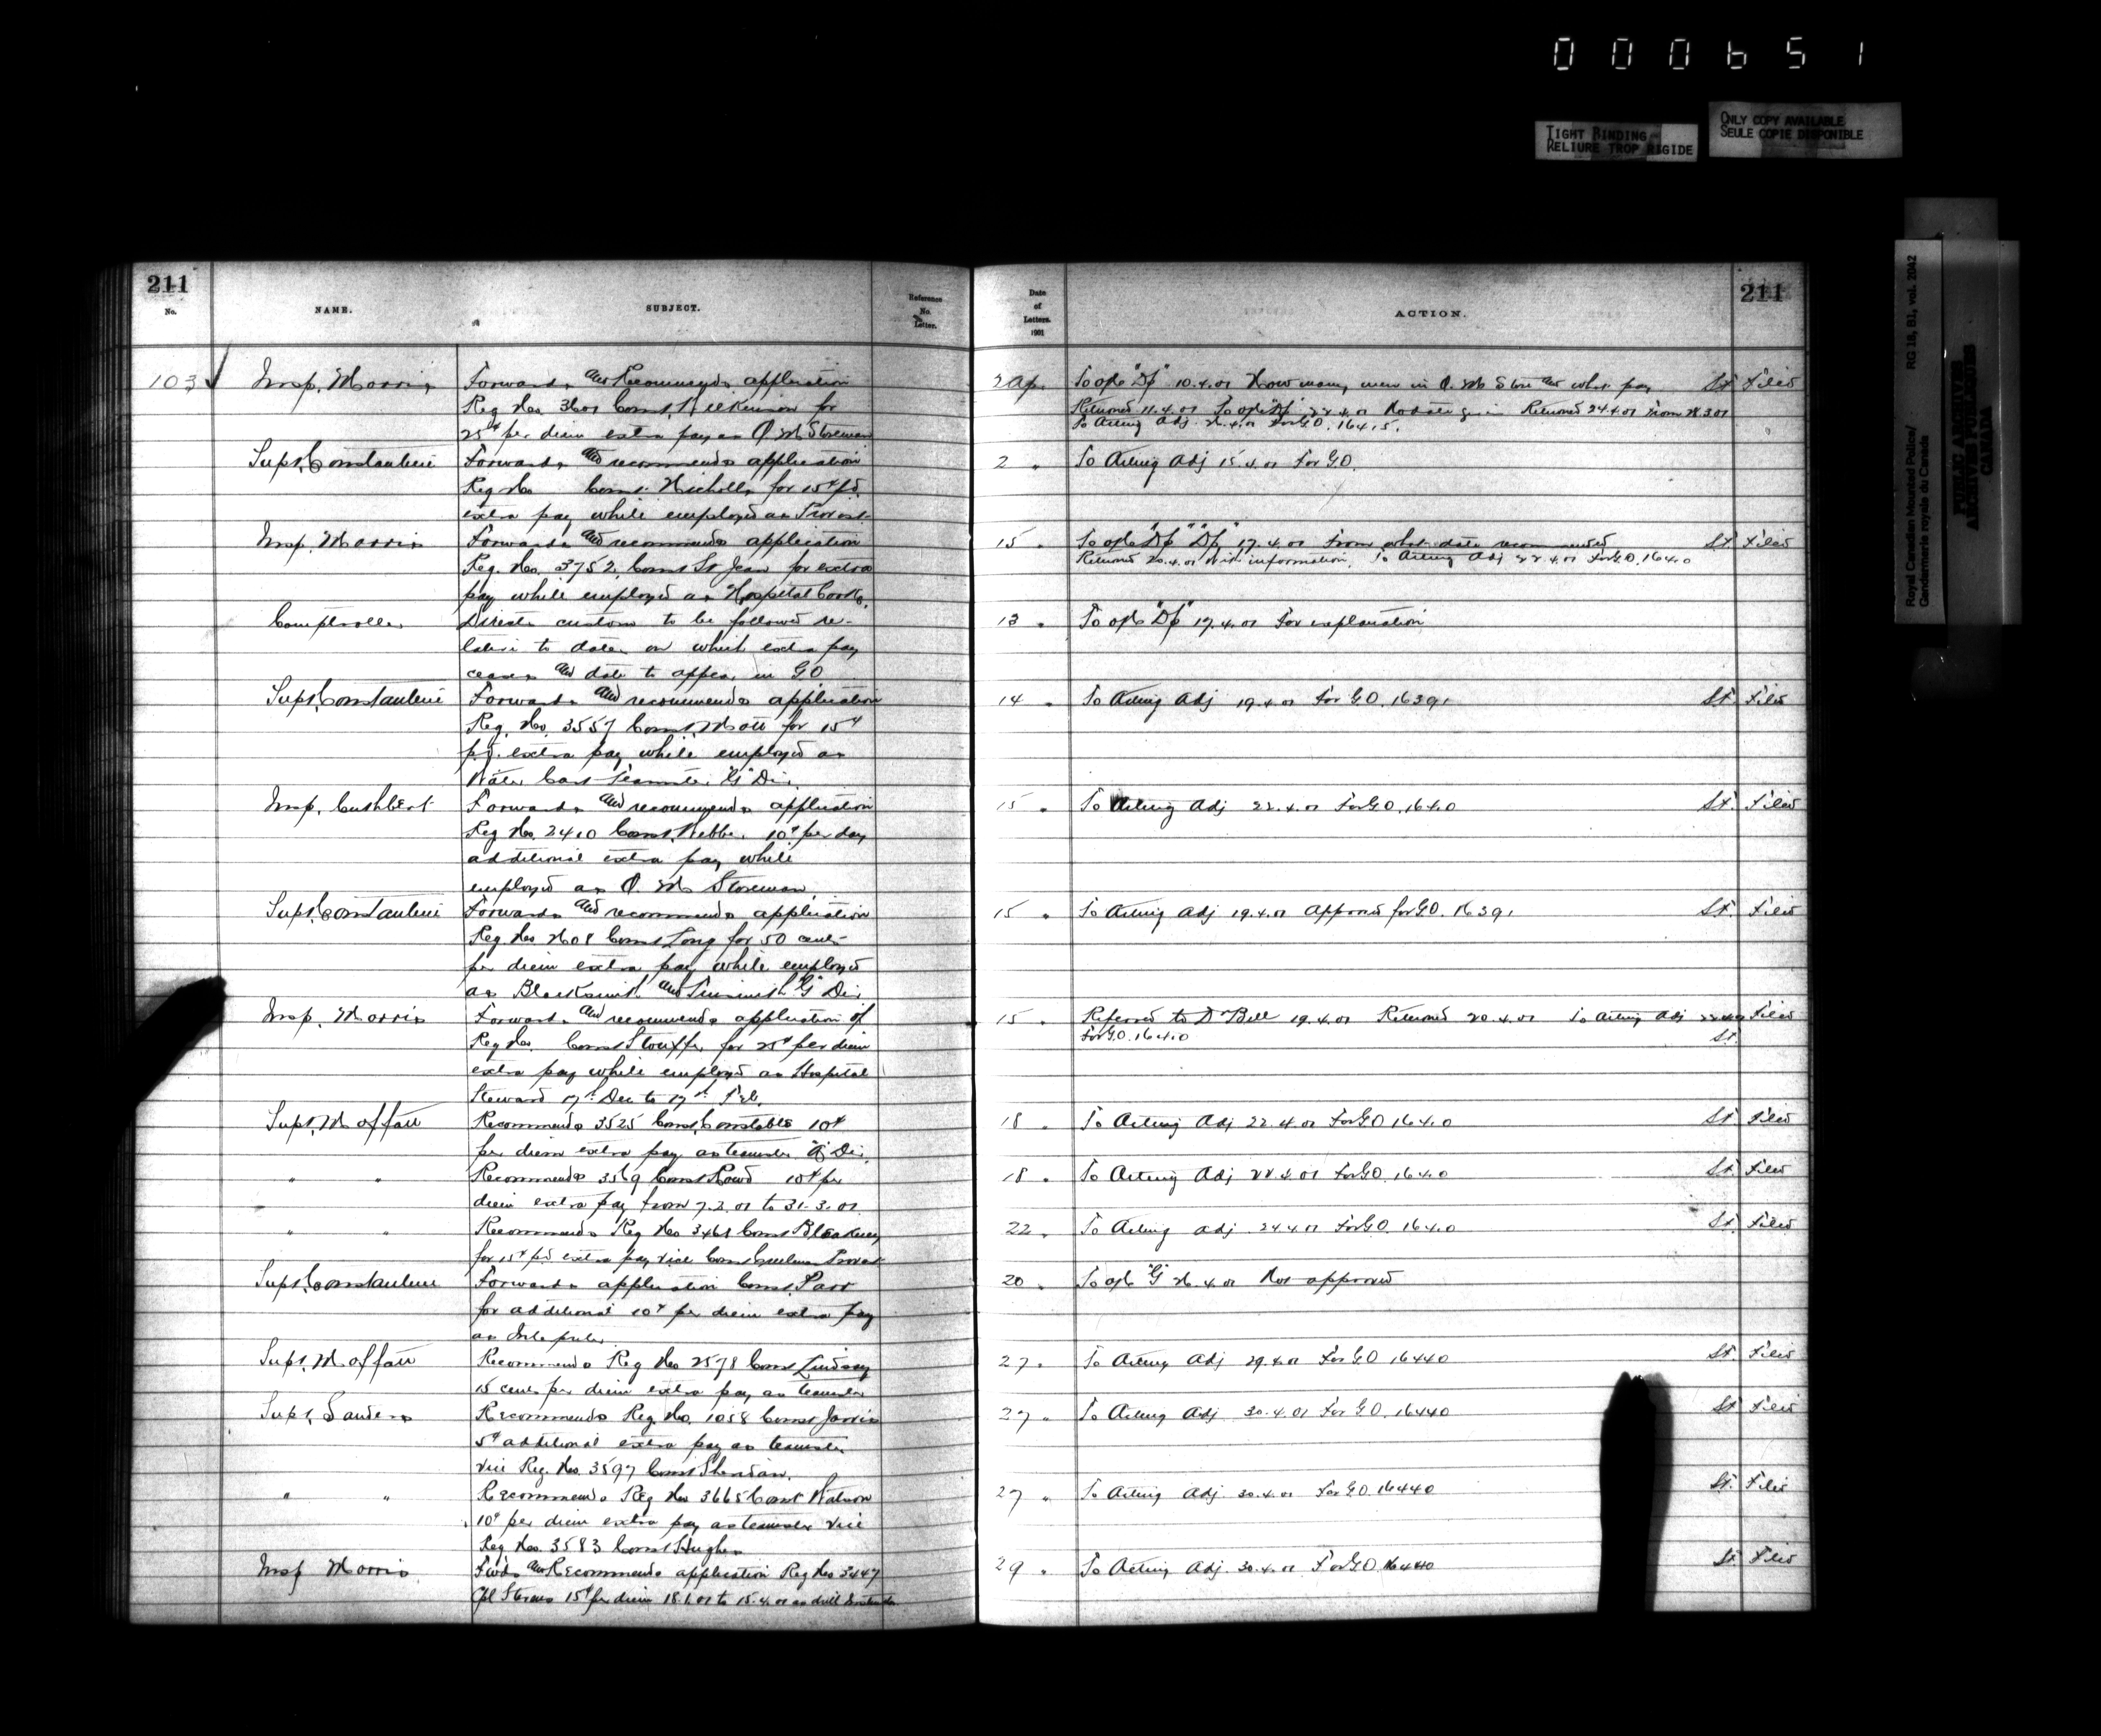 000651
TIGHT BINDING
RELIURE TROP RIGIDE
ONLY COPY AVAILABLE
SEULE COPIE DISPONIBLE
Royal Canadian Mounted Police/
Gendarmerie royale du Canada
RG 18, B1, vol. 2042
PUBLIC ARCHIVES
ARCHIVES PUBLIQUES
CANADA
211
No.
NAME.
SUBJECT.
Reference
No.
Letter.
Date
of
Letters.
1901
ACTION.
211
103 Insp. Morris Forwards and Recommends application
Reg No. 3601 Const. Wilkinson for
25¢ per diem extra pay as Q M Storeman
2 Ap. To offr "D" 10.4.01 How many men in Q. M Store and what pay St. Filed
Returned 11.4.01 To offr "D" 22.4.01 No date given Returned 24.4.01 from
To Acting Adj. 26.4.01 For G.O. 16415.
Supt. Constantine Forwards and recommends application
Reg No Const. Nicholls for 15¢ p.d.
extra pay while employed as Provost
2 " To Acting Adj 15.4.01 For G.O.
Insp. Morris Forwards and recommends application
Reg. No. 3752 Const St Jean for extra
pay while employed as Hospital Cook.
15 " To offr "D" "D" 17.4.01 From what date recommended St. Filed
Returned 20.4.01 With information. To Acting Adj 22.4.01 For G.O. 16410
Comptroller Directs custom to be followed re-
lative to dates on which extra pay
ceases and date to appear in G O
13 " To offr "D" 17.4.01 For explanation
Supt. Constantine Forwards and recommends application
Reg. No. 3557 Const. Mott for 15¢
p.d. extra pay while employed as
Water Cart Teamster "G" Div.
14 " To Acting Adj 19.4.01 For G.O. 16391 St. Filed
Insp. Cuthbert Forwards and recommends application
Reg No. 2410 Const. Webber 10¢ per day
additional extra pay while
employed as Q M Storeman.
15 " To Acting Adj 22.4.01 For G.O. 16410 St. Filed
Supt. Constantine Forwards and recommends application
Reg No Const Long for 50 cents
per diem extra pay while employed
as Blacksmith and Tinsmith "G" Div.
15 " To Acting Adj 19.4.01 Approved for G.O. 16391 St. Filed
Insp. Morris Forwards and recommends application of
Reg No. Const Stouffer for 25¢ per diem
extra pay while employed as Hospital
Steward 17th Dec to 17th Feb.
15 " Referred to Dr Bell 19.4.01 Returned 20.4.01 To Acting Adj Filed
For G.O. 16410 St.
Supt. Moffatt Recommends 3525 Const. Constable 10¢
per diem extra pay as teamster Div.
18 " To Acting Adj 22.4.01 For G.O. 16410 St. Filed
" " Recommends 3569 Const Rowd 10¢ per
diem extra pay from 7.3.01 to 31.3.01.
18 " To Acting Adj 22.4.01 For G.O. 16410 St. Filed
" " Recommends Reg No 3461 Const Bleakney
for 15¢ p.d. extra pay vice Const Provost
22 " To Acting Adj 24.4.01 For G.O. 16410 St. Filed
Supt. Constantine Forwards application Const. Parr
for additional 10¢ per diem extra pay
as Interpreter
20 " To offr "G" 26.4.01 Not approved
Supt. Moffatt Recommends Reg No 2578 Const Lindsay
15 cents per diem extra pay as teamster
27 " To Acting Adj 29.4.01 For G.O. 16440 St. Filed
Supt. Sanders Recommends Reg. No. 1058 Const Jarvis
5¢ additional extra pay as teamster
vice Reg. No. 3597 Const Sheridan.
27 " To Acting Adj 30.4.01 For G.O. 16440 St. Filed
" " Recommends Reg No 3665 Const Watson
10¢ per diem extra pay as teamster vice
Reg No. 3583 Const Hughes
27 " To Acting Adj. 30.4.01 For G.O. 16440 St. Filed
Insp Morris Fwds and Recommends application Reg No 3447
Cpl Stevens 15¢ per diem 18.1.01 to 15.4.01 as drill Instructor
29 " To Acting Adj. 30.4.01 For G.O. 16440 St. Filed